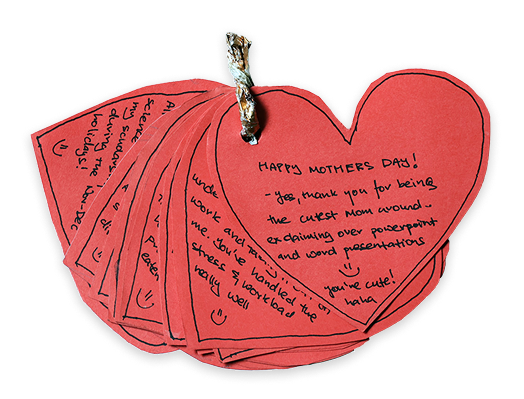 HAPPY MOTHERS DAY!
- Yes, thank you for being
the cutest Mom around..
exclaiming over powerpoint
and word presentations
you're cute!
haha
unde
work and
me. You've handled the
stress & workload
really well
eaten
science
my
during the Nov-Dec
holidays!